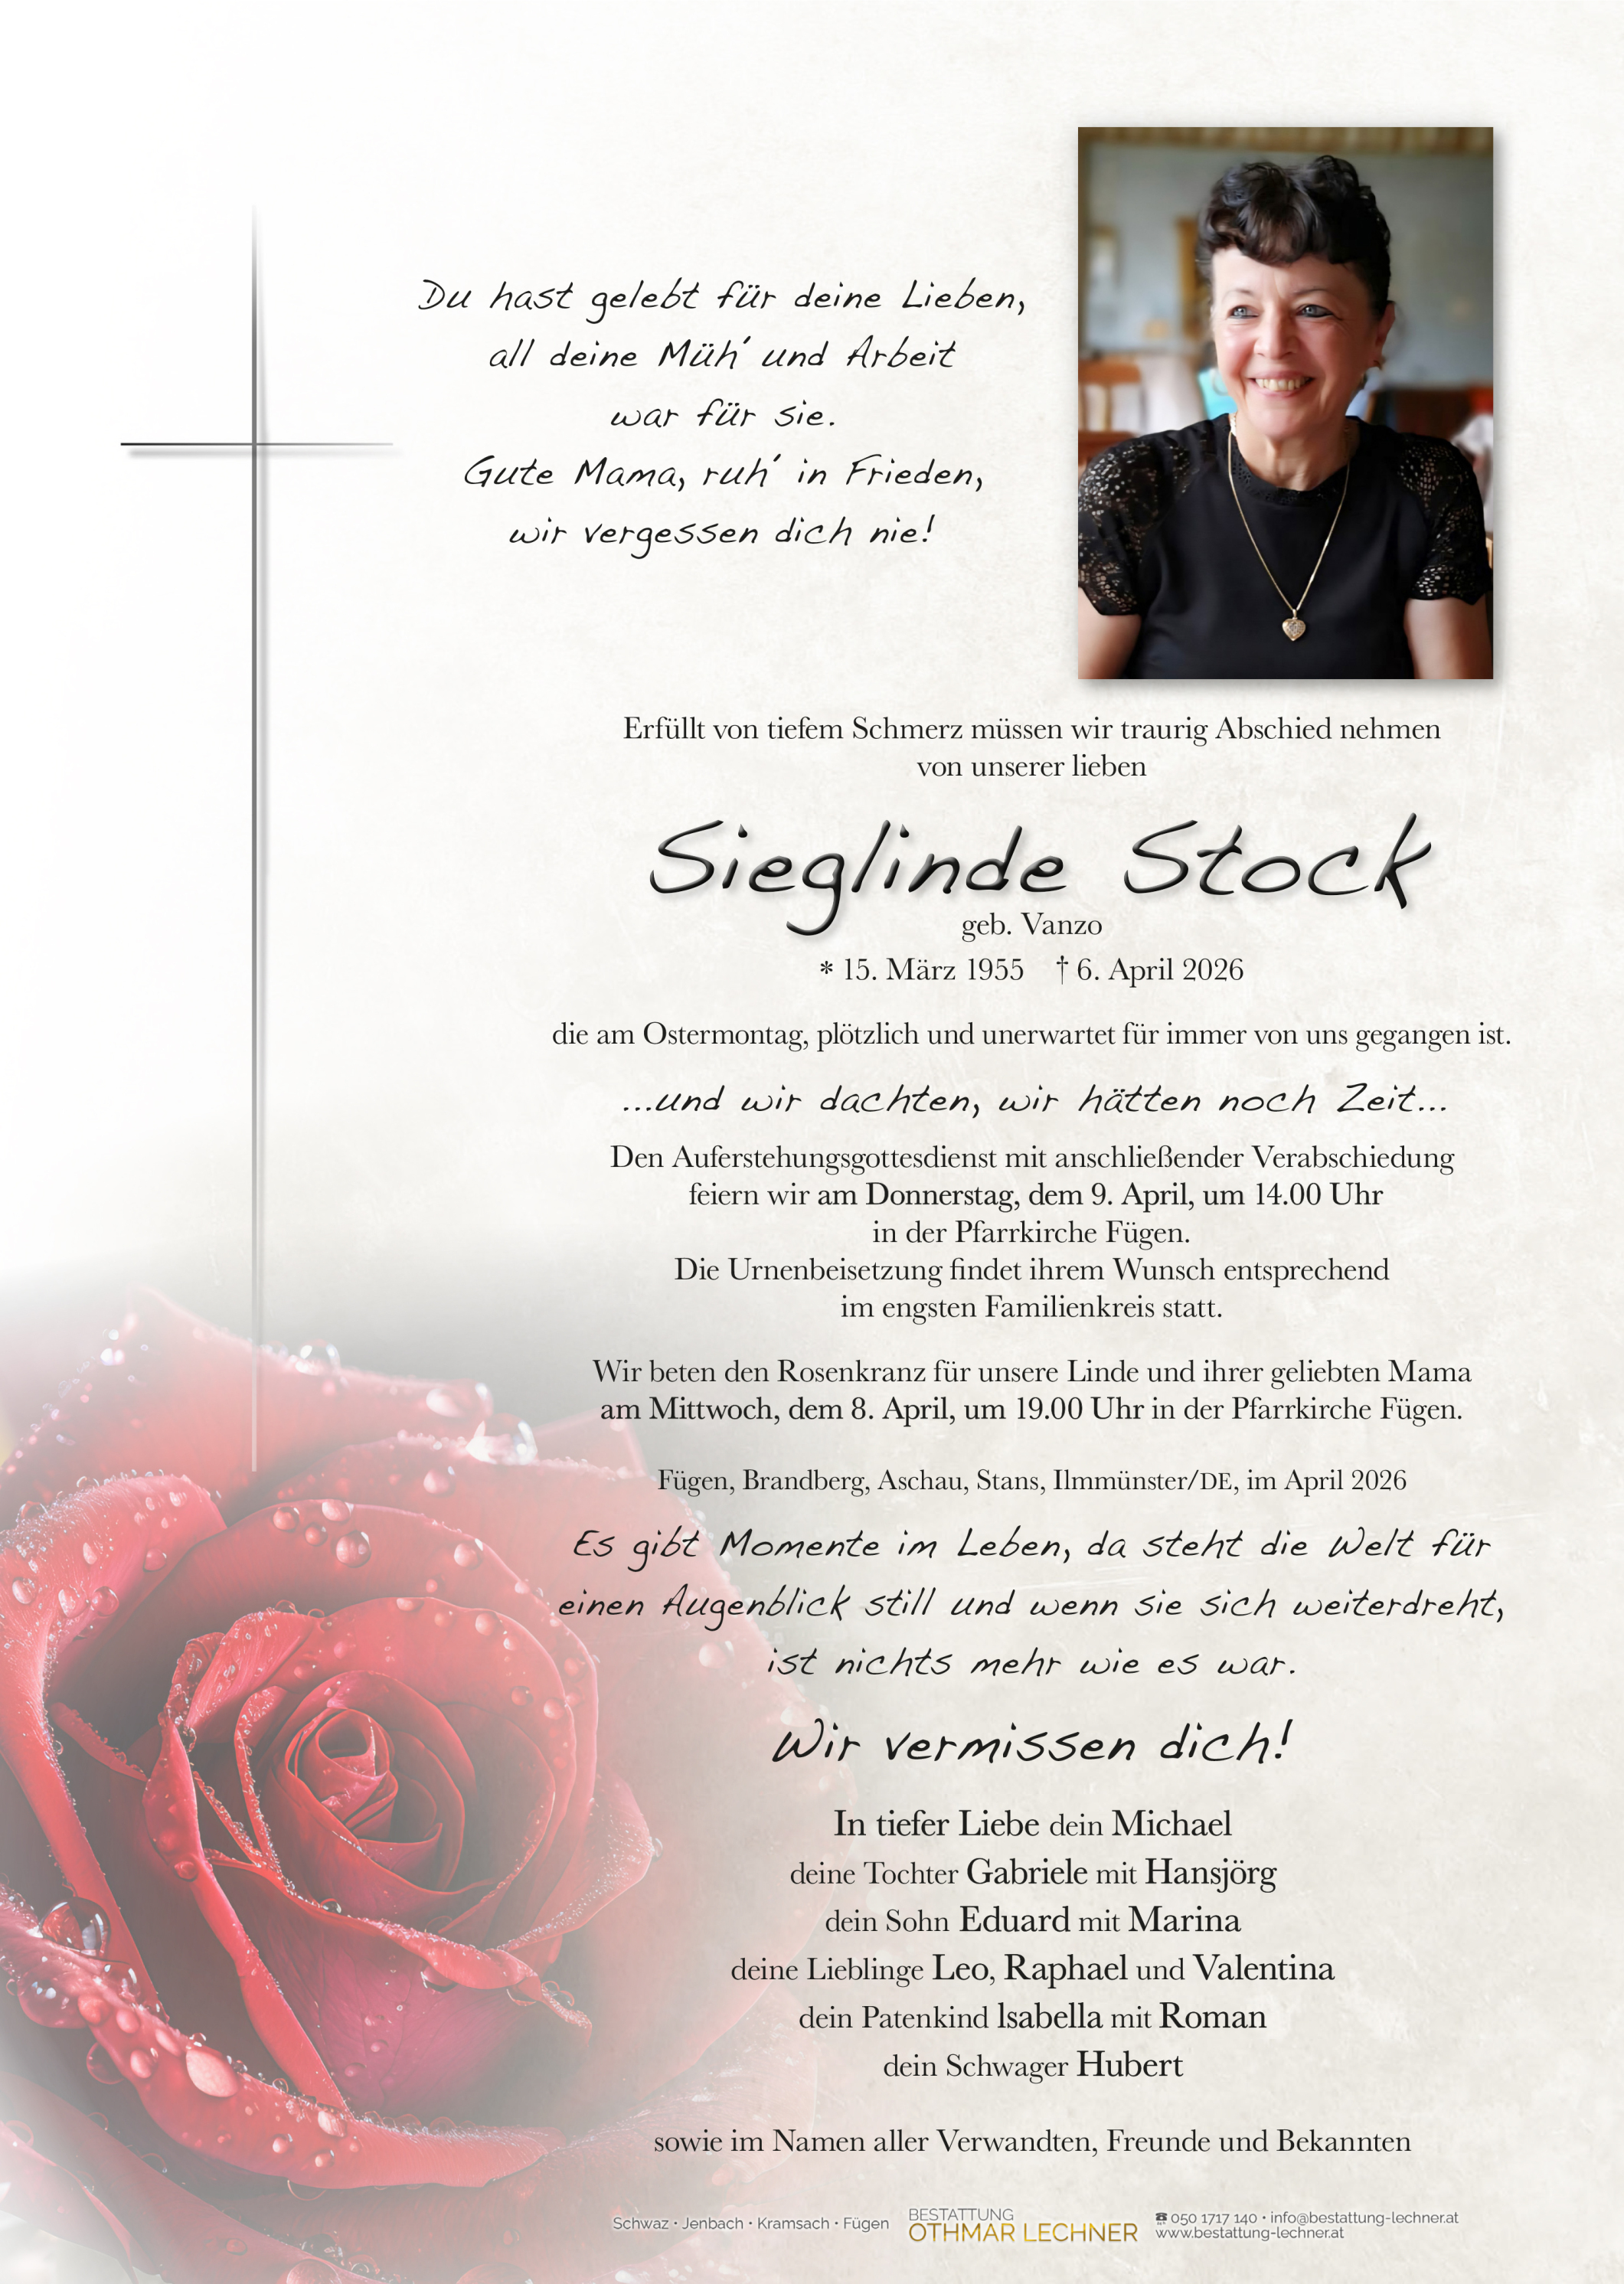 Du hast gelebt für deine Lieben,
all deine Müh´ und Arbeit
war für sie.
Gute Mama, ruh´ in Frieden,
wir vergessen dich nie!
Erfüllt von tiefem Schmerz müssen wir traurig Abschied nehmen
von unserer lieben
Sieglinde Stock
geb. Vanzo
* 15. März 1955 † 6. April 2026
die am Ostermontag, plötzlich und unerwartet für immer von uns gegangen ist.
...und wir dachten, wir hätten noch Zeit...
Den Auferstehungsgottesdienst mit anschließender Verabschiedung
feiern wir am Donnerstag, dem 9. April, um 14.00 Uhr
in der Pfarrkirche Fügen.
Die Urnenbeisetzung findet ihrem Wunsch entsprechend
im engsten Familienkreis statt.
Wir beten den Rosenkranz für unsere Linde und ihrer geliebten Mama
am Mittwoch, dem 8. April, um 19.00 Uhr in der Pfarrkirche Fügen.
Fügen, Brandberg, Aschau, Stans, Ilmmünster/DE, im April 2026
Es gibt Momente im Leben, da steht die Welt für
einen Augenblick still und wenn sie sich weiterdreht,
ist nichts mehr wie es war.
Wir vermissen dich!
In tiefer Liebe dein Michael
deine Tochter Gabriele mit Hansjörg
dein Sohn Eduard mit Marina
deine Lieblinge Leo, Raphael und Valentina
dein Patenkind lsabella mit Roman
dein Schwager Hubert
sowie im Namen aller Verwandten, Freunde und Bekannten
Schwaz • Jenbach • Kramsach • Fügen
BESTATTUNG
OTHMAR LECHNER
☎ 050 1717 140 • info@bestattung-lechner.at
www.bestattung-lechner.at